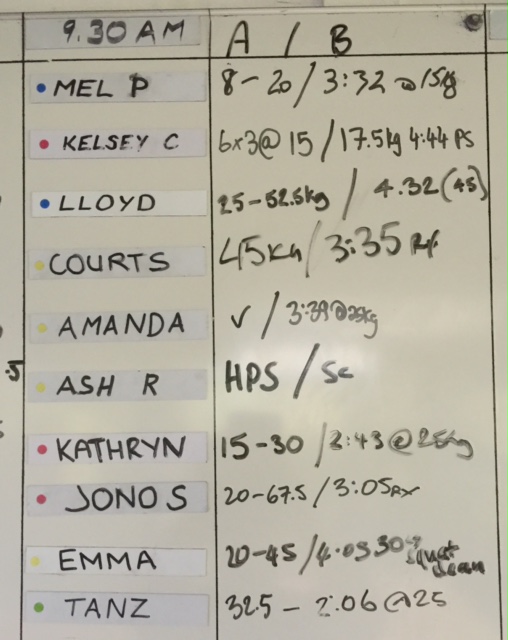 9.30 AM A / B
MEL P 8-20 / 3:32 @ 15kg
KELSEY C 6x3@ 15 / 17.5kg 4:44 PS
LLOYD 25-52.5kg / 4.32 (45)
COURTS 45kg / 3:35 RX
AMANDA ✓ / 3:39 @25kg
.5
ASH R HPS / Sc
KATHRYN 15-30 / 2:43 @ 25kg
JONO S 20-67.5 / 3:05 RX
EMMA 20-45 / 4.09 30kg squat clean
TANZ 32.5 - 2:06 @ 25